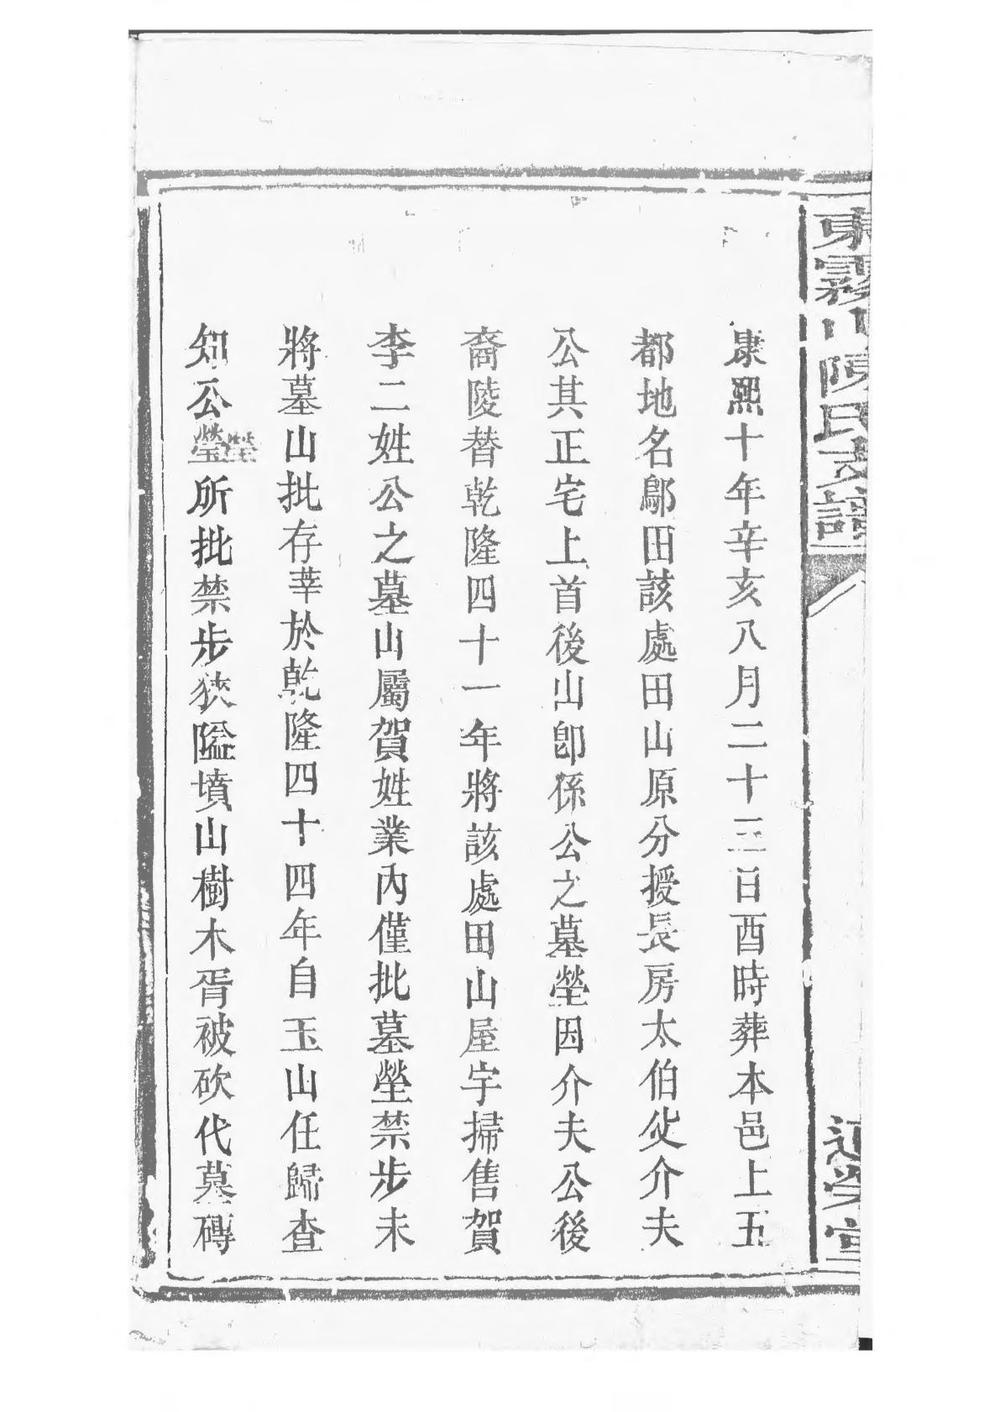 東霧山陳氏支譜
康熙十年辛亥八月二十三日酉時葬本邑上五
都地名鄔田該處田山原分授長房太伯父介夫
公其正宅上首後山卽係公之墓塋因介夫公後
裔陵替乾隆四十一年將該處田山屋宇掃售賀
李二姓公之墓山屬賀姓業內僅批墓塋禁步未
將墓山批存華於乾隆四十四年自玉山任歸查
知公塋所批禁步狹隘墳山樹木胥被砍代墓磚